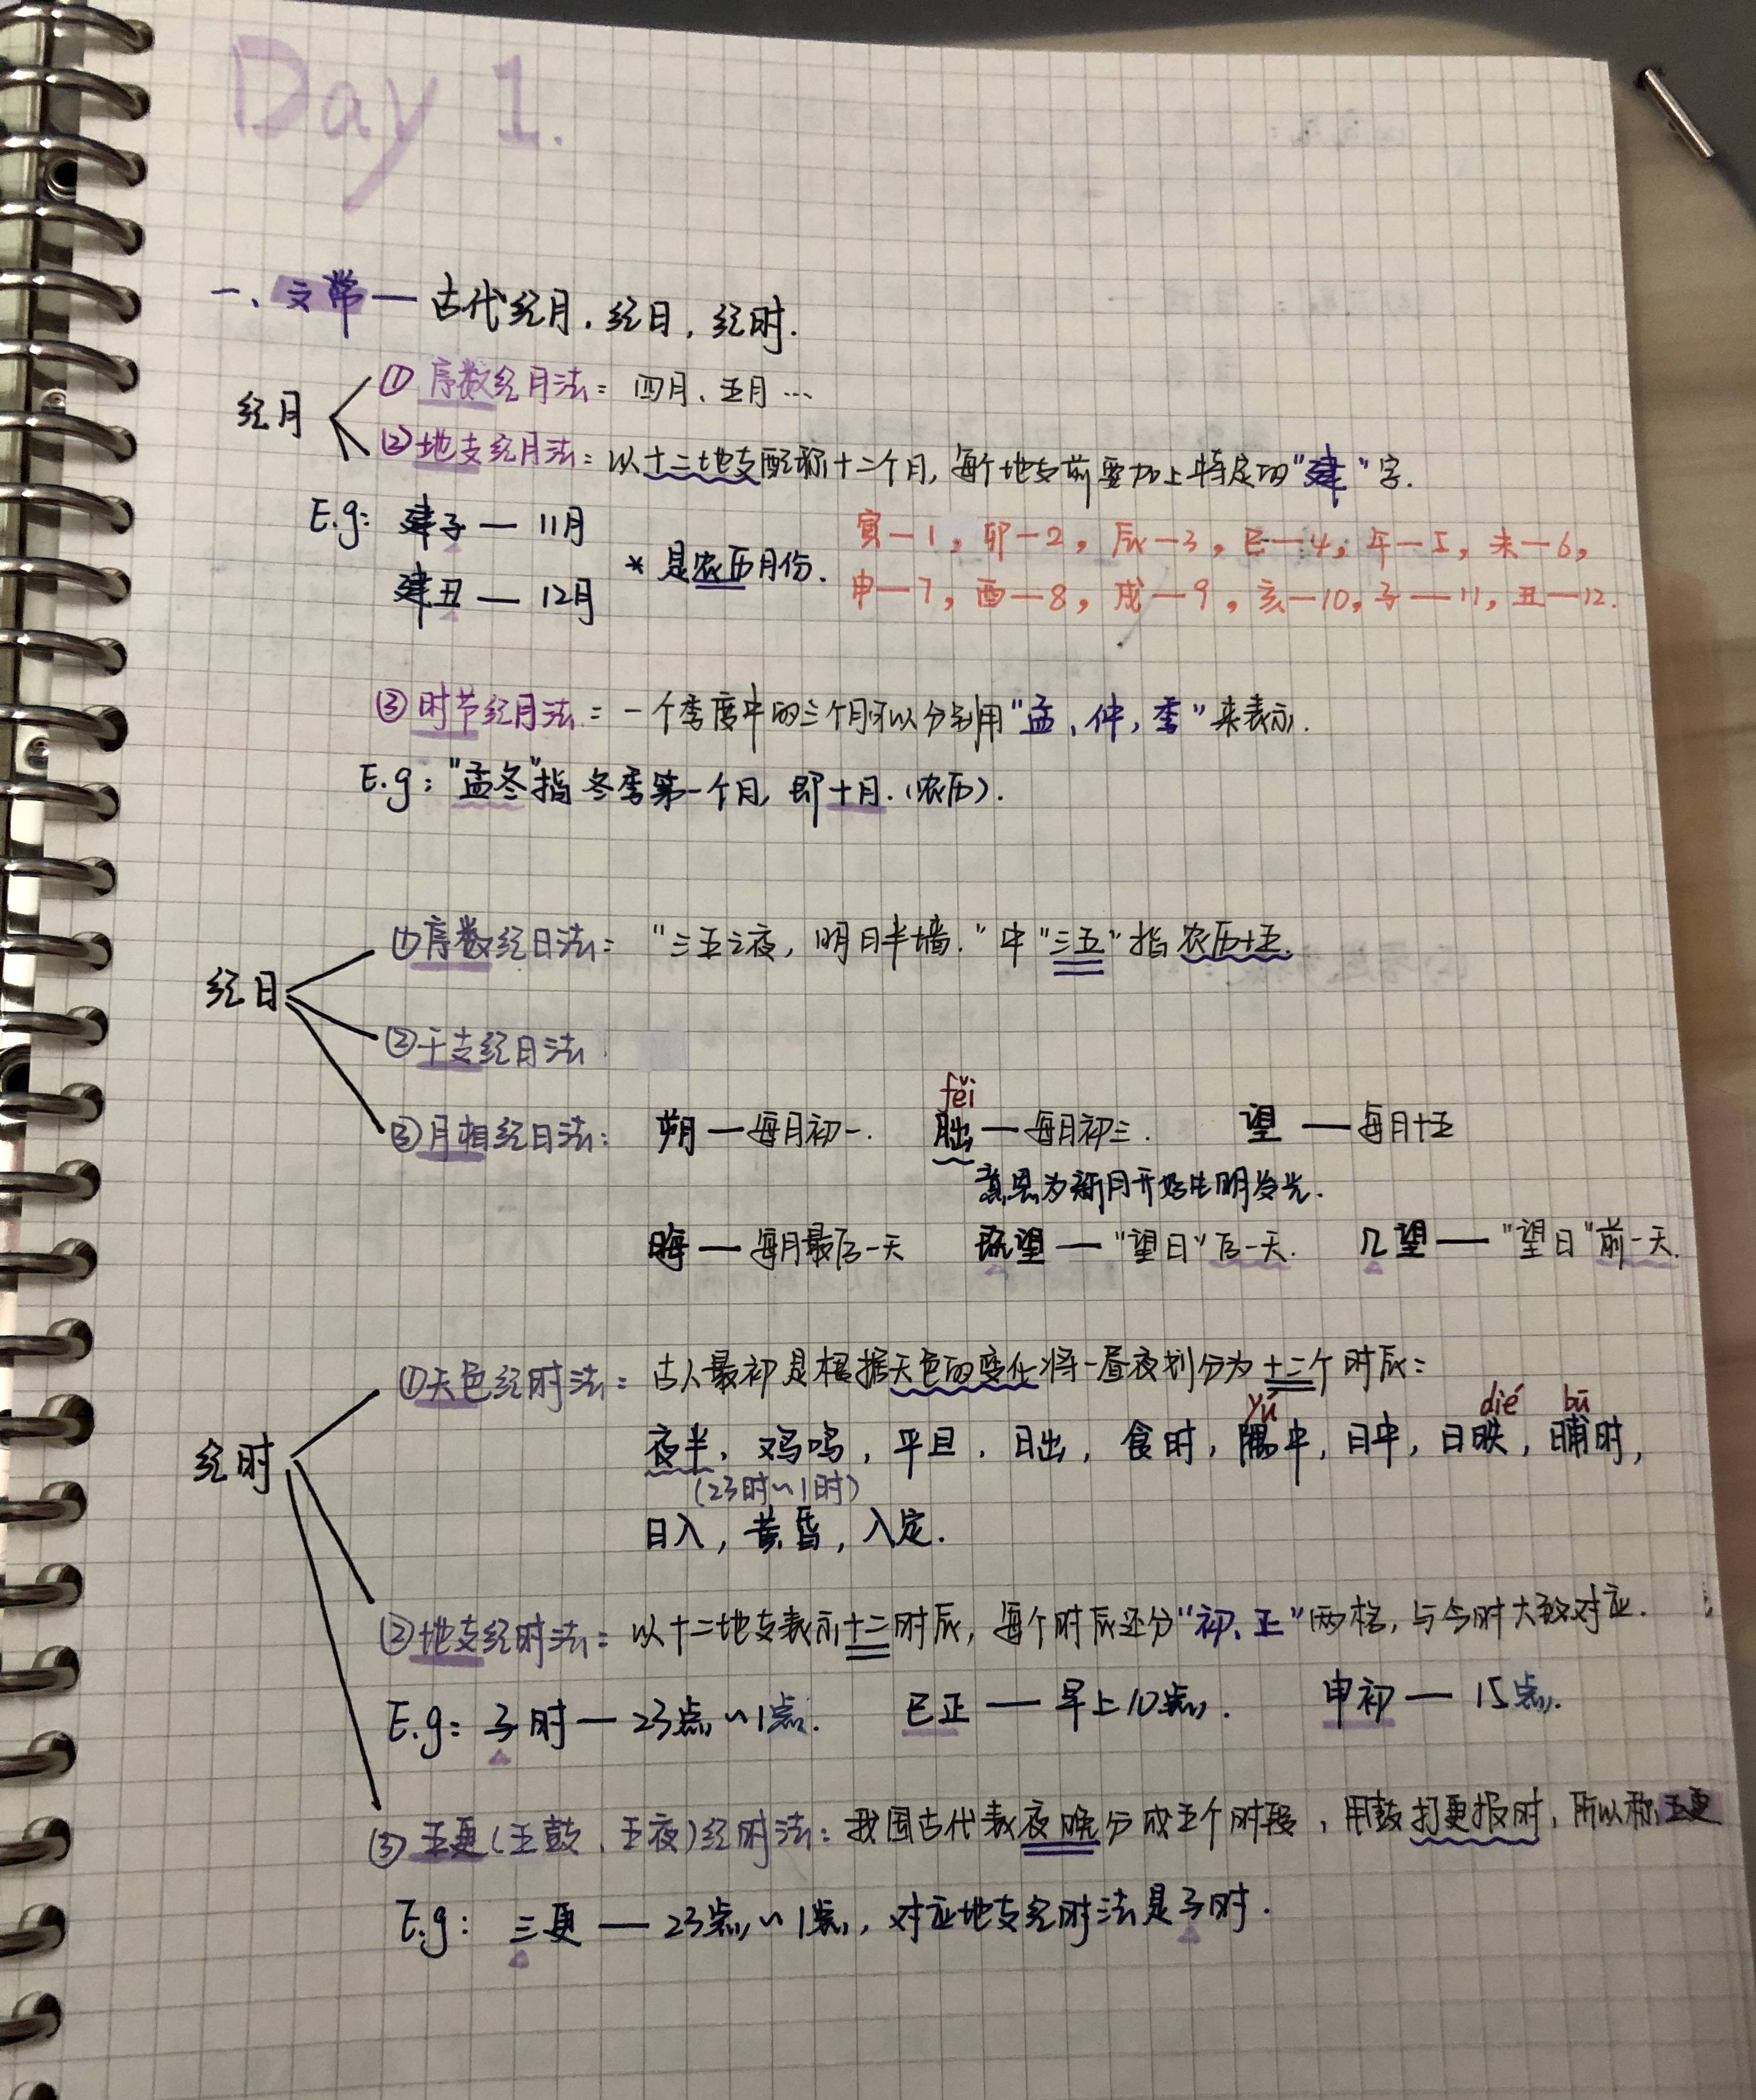 Day 1.
一、文常 — 古代纪月，纪日，纪时.
纪月
① 序数纪月法： 四月、五月 …
② 地支纪月法：以十二地支配称十二个月，每个地支前要加上特定的“建”字.
E.g： 建子 — 11月
建丑 — 12月
* 是农历月份.
寅—1，卯—2，辰—3，巳—4，午—5，未—6，
申—7，酉—8，戌—9，亥—10，子—11，丑—12.
③ 时节纪月法：一个季度中的三个月可以分别用“孟、仲，季”来表示.
E.g：“孟冬”指冬季第一个月，即十月.（农历）.
纪日
① 序数纪日法： “三五之夜，明月半墙.”中“三五”指农历十五.
② 干支纪日法
③ 月相纪日法： 朔 — 每月初一. 朏 — 每月初三. 望 — 每月十五
fěi
意思为新月开始生明发光.
晦 — 每月最后一天 既望 — “望日”后一天. 几望 — “望日”前一天.
纪时
① 天色纪时法： 古人最初是根据天色的变化将一昼夜划分为十二个时辰：
yú dié bū
夜半，鸡鸣，平旦，日出，食时，隅中，日中，日昳，晡时，
（23时～1时）
日入，黄昏，入定.
② 地支纪时法：以十二地支表示十二时辰，每个时辰还分“初、正”两栏，与今时大致对应.
E.g：子时 — 23点～1点. 巳正 — 早上10点. 申初 — 15点.
③ 五更（五鼓、五夜）纪时法：我国古代表夜晚分成五个时段，用鼓打更报时，所以称五更
E.g： 三更 — 23点～1点，对应地支纪时法是子时.